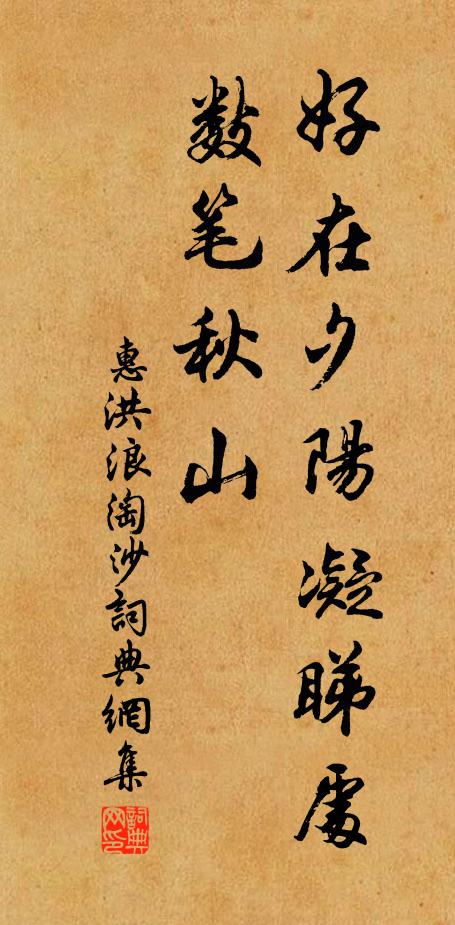 好在夕陽凝睇處
数笔秋山
惠洪浪淘沙詞典網集
詞典网印